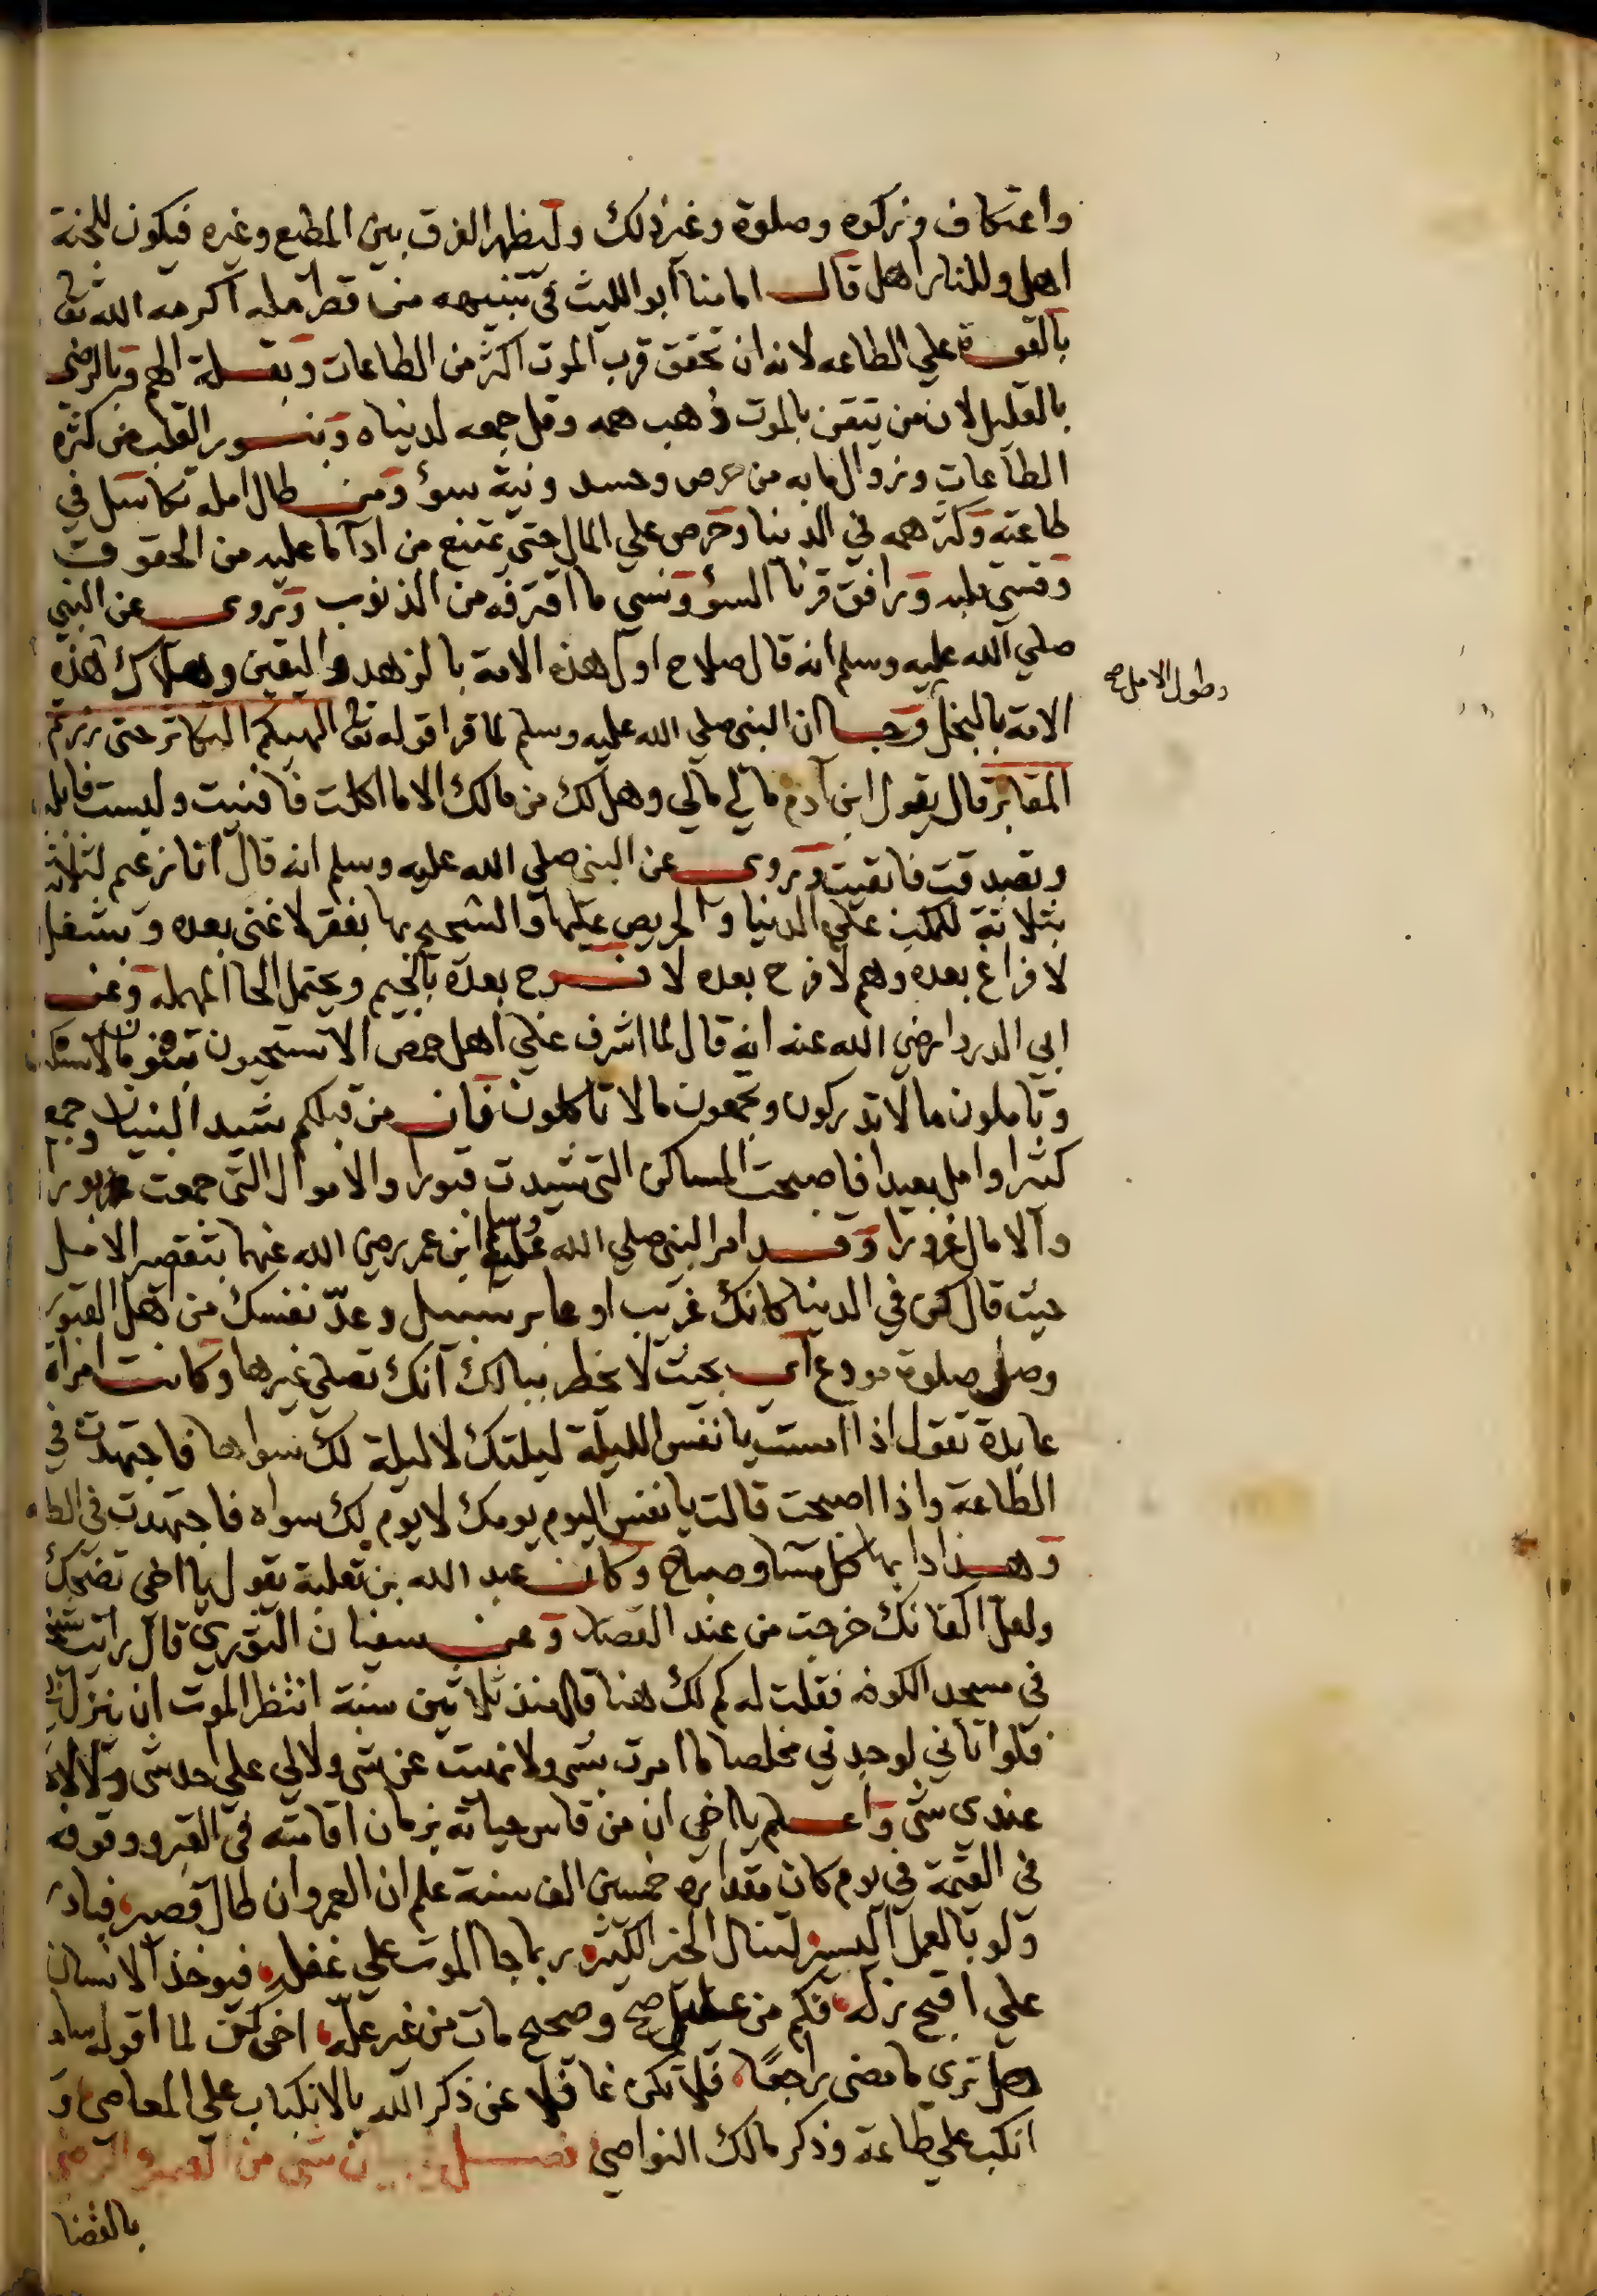 واعتكاف وزكوه وصلوة وغير ذلك وليظهر الفرق بين المطيع وغيره فيكون للجنة
اهل وللنار اهل قال امامنا ابو الليث في تنبيهه من قصر امله اكرمه الله تعا
بالقوة علي الطاعه لانه ان تحقق قرب الموت اكثر من الطاعات وبقلة الهم وبالرضى
بالقليل لان من يتقن بالموت ذهب همه وقل جمعه لدنياه وبنور القلب من كثرة
الطاعات وزوال ما به من حرص وحسد ونية سوؤ ومن طال امله تكاسل في
طاعته وكثر همه في الدنيا وحرص علي المال حتى يمتنع من ادآ ما عليه من الحقوق
وقسي قلبه ورافق قرنا السؤ ونسي ما اقترفه من الذنوب وروى عن النبي
صلي الله عليه وسلم انه قال صلاح اول هذه الامة بالزهد واليقين وهلاك هذه
وطول الامل صح
الامة بالبخل وجا ان النبي صلي الله عليه وسلم لما قرا قوله تعا الهيكم التكاثر حتى زرتم
المقابر قال يقول ابن آدم مالي مالي وهل لك من مالك الا ما اكلت فافنيت ولبست فابليت
وتصدقت فابقيت وروى عن النبي صلي الله عليه وسلم انه قال انا زعيم لثلاثة
بثلاثة للمكب علي الدنيا والحريص عليها والشحيح بها بفقر لا غنى بعده وبشغل
لا فراغ بعده وهم لا فرح بعده لا فرج بعده بالجيم ويحتمل الحا المهمله وعن
ابي الدردا رضي الله عنه انه قال لما اشرف علي اهل حمص الا تستحيون تبنون ما لا تسكنون
وتاملون ما لا تدركون وتجمعون ما لا تاكلون فان من قبلكم شيد البنيان وجمع
كثيرا وامل بعيدا فاصبحت المساكن التي شيدت قبورا والاموال التي جمعت بورا
والامال غرورا وقد امر النبي صلي الله عليه وسلم ابن عمر رضي الله عنهما بتقصير الامل
حيث قال كن في الدنيا كانك غريب او عابر سبيل وعدّ نفسك من اهل القبور
وصل صلوة مودع اي بحيث لا يخطر ببالك انك تصلي غيرها وكانت امراة
عابدة تقول اذا امست يا نفس الليلة ليلتك لا ليلة لك سواها فاجتهدت في
الطاعة واذا اصبحت قالت يا نفس اليوم يومك لا يوم لك سواه فاجتهدت في الطا
وهذا دابها كل مسا وصباح وكان عبد الله بن ثعلبة يقول يا اخي تضحك
ولعل اكفانك خرجت من عند القصار وعن سفيان الثوري قال رايت شيخا
في مسجد الكوفه فقلت له كم لك هنا قال منذ ثلاثين سنة انتظر الموت ان ينزل بي
فلو اتاني لوجدني مخلصا ما امرت بشي ولا نهيت عن شي ولا لي علي احد شي ولا لاحد
عندى شي واعلم يا اخي ان من قاس حياته بزمان اقامته في القبر ووقوفه
في القيمة في يوم كان مقداره خمسين الف سنة علم ان العمر وان طال قصير فبادر
ولو بالعمل اليسير لتنال الخير الكثير ربما جا الموت علي غفله فيوخذ الانسان
علي اقبح زله فكم من عليل صح وصحيح مات من غير علّه اخي كن لما اقول
هل ترى ما مضى راجعًا فلا تكن غافلا عن ذكر الله بالانكباب علي المعاصي و
انكب علي طاعة وذكر مالك النواصي فصل في بيان شي من الصبر والرضى
بالقضا